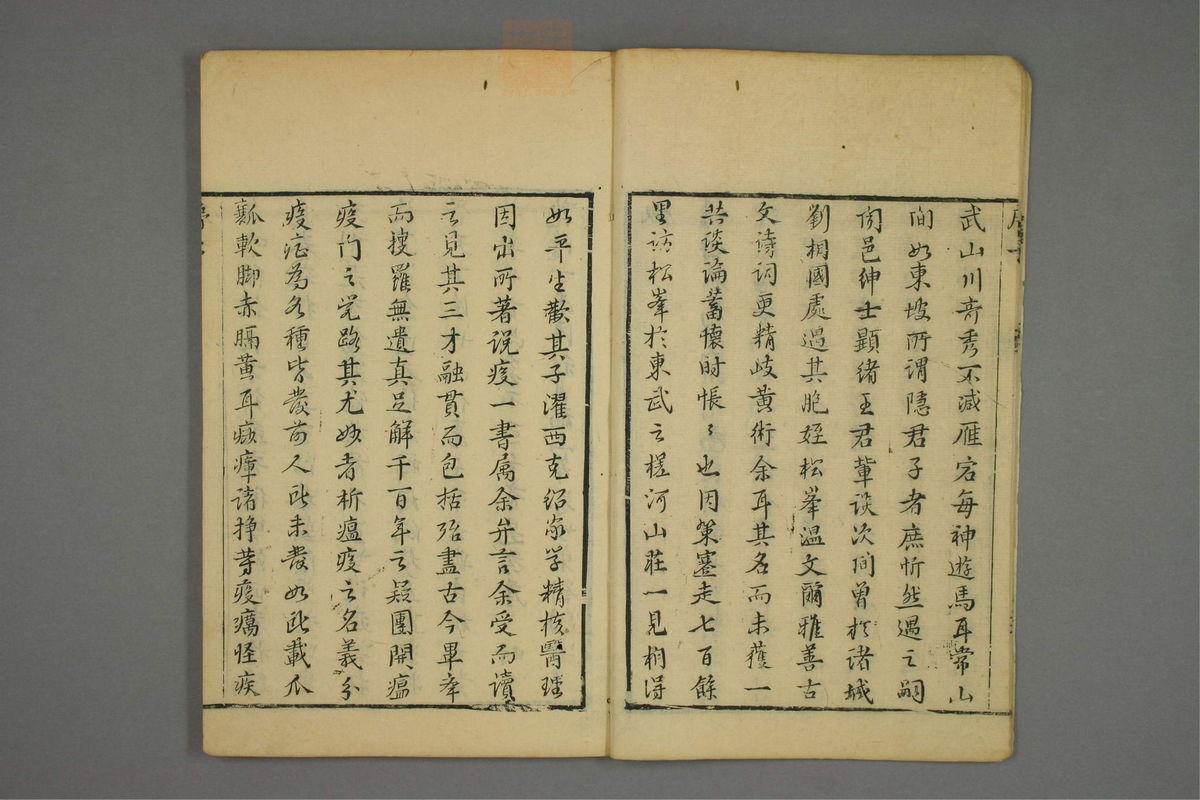 武山川奇秀不減雁宕每神遊馬耳常山
間如東坡所謂隱君子者庶忻然遇之嗣
閱邑紳士顯緒王君輩談次間曾於諸城
劉相國處遇其胞姪松峯溫文爾雅善古
文詩詞更精岐黃術余耳其名而未獲一
共談論蓄懷時悵〻也因策蹇走七百餘
里訪松峯於東武之槎河山莊一見相得
如平生歡其子濯西克紹家学精核醫理
因出所著說疫一書属余弁言余受而讀
之見其三才融貫而包括殆盡古今畢舉
而搜羅無遺真足解千百年之疑團開瘟
疫門之覚路其尤妙者析瘟疫之名義分
疫症為各種皆發前人所未發如所載瓜
瓤軟脚赤膈黃耳痧瘴諸掙等疫癘怪疾